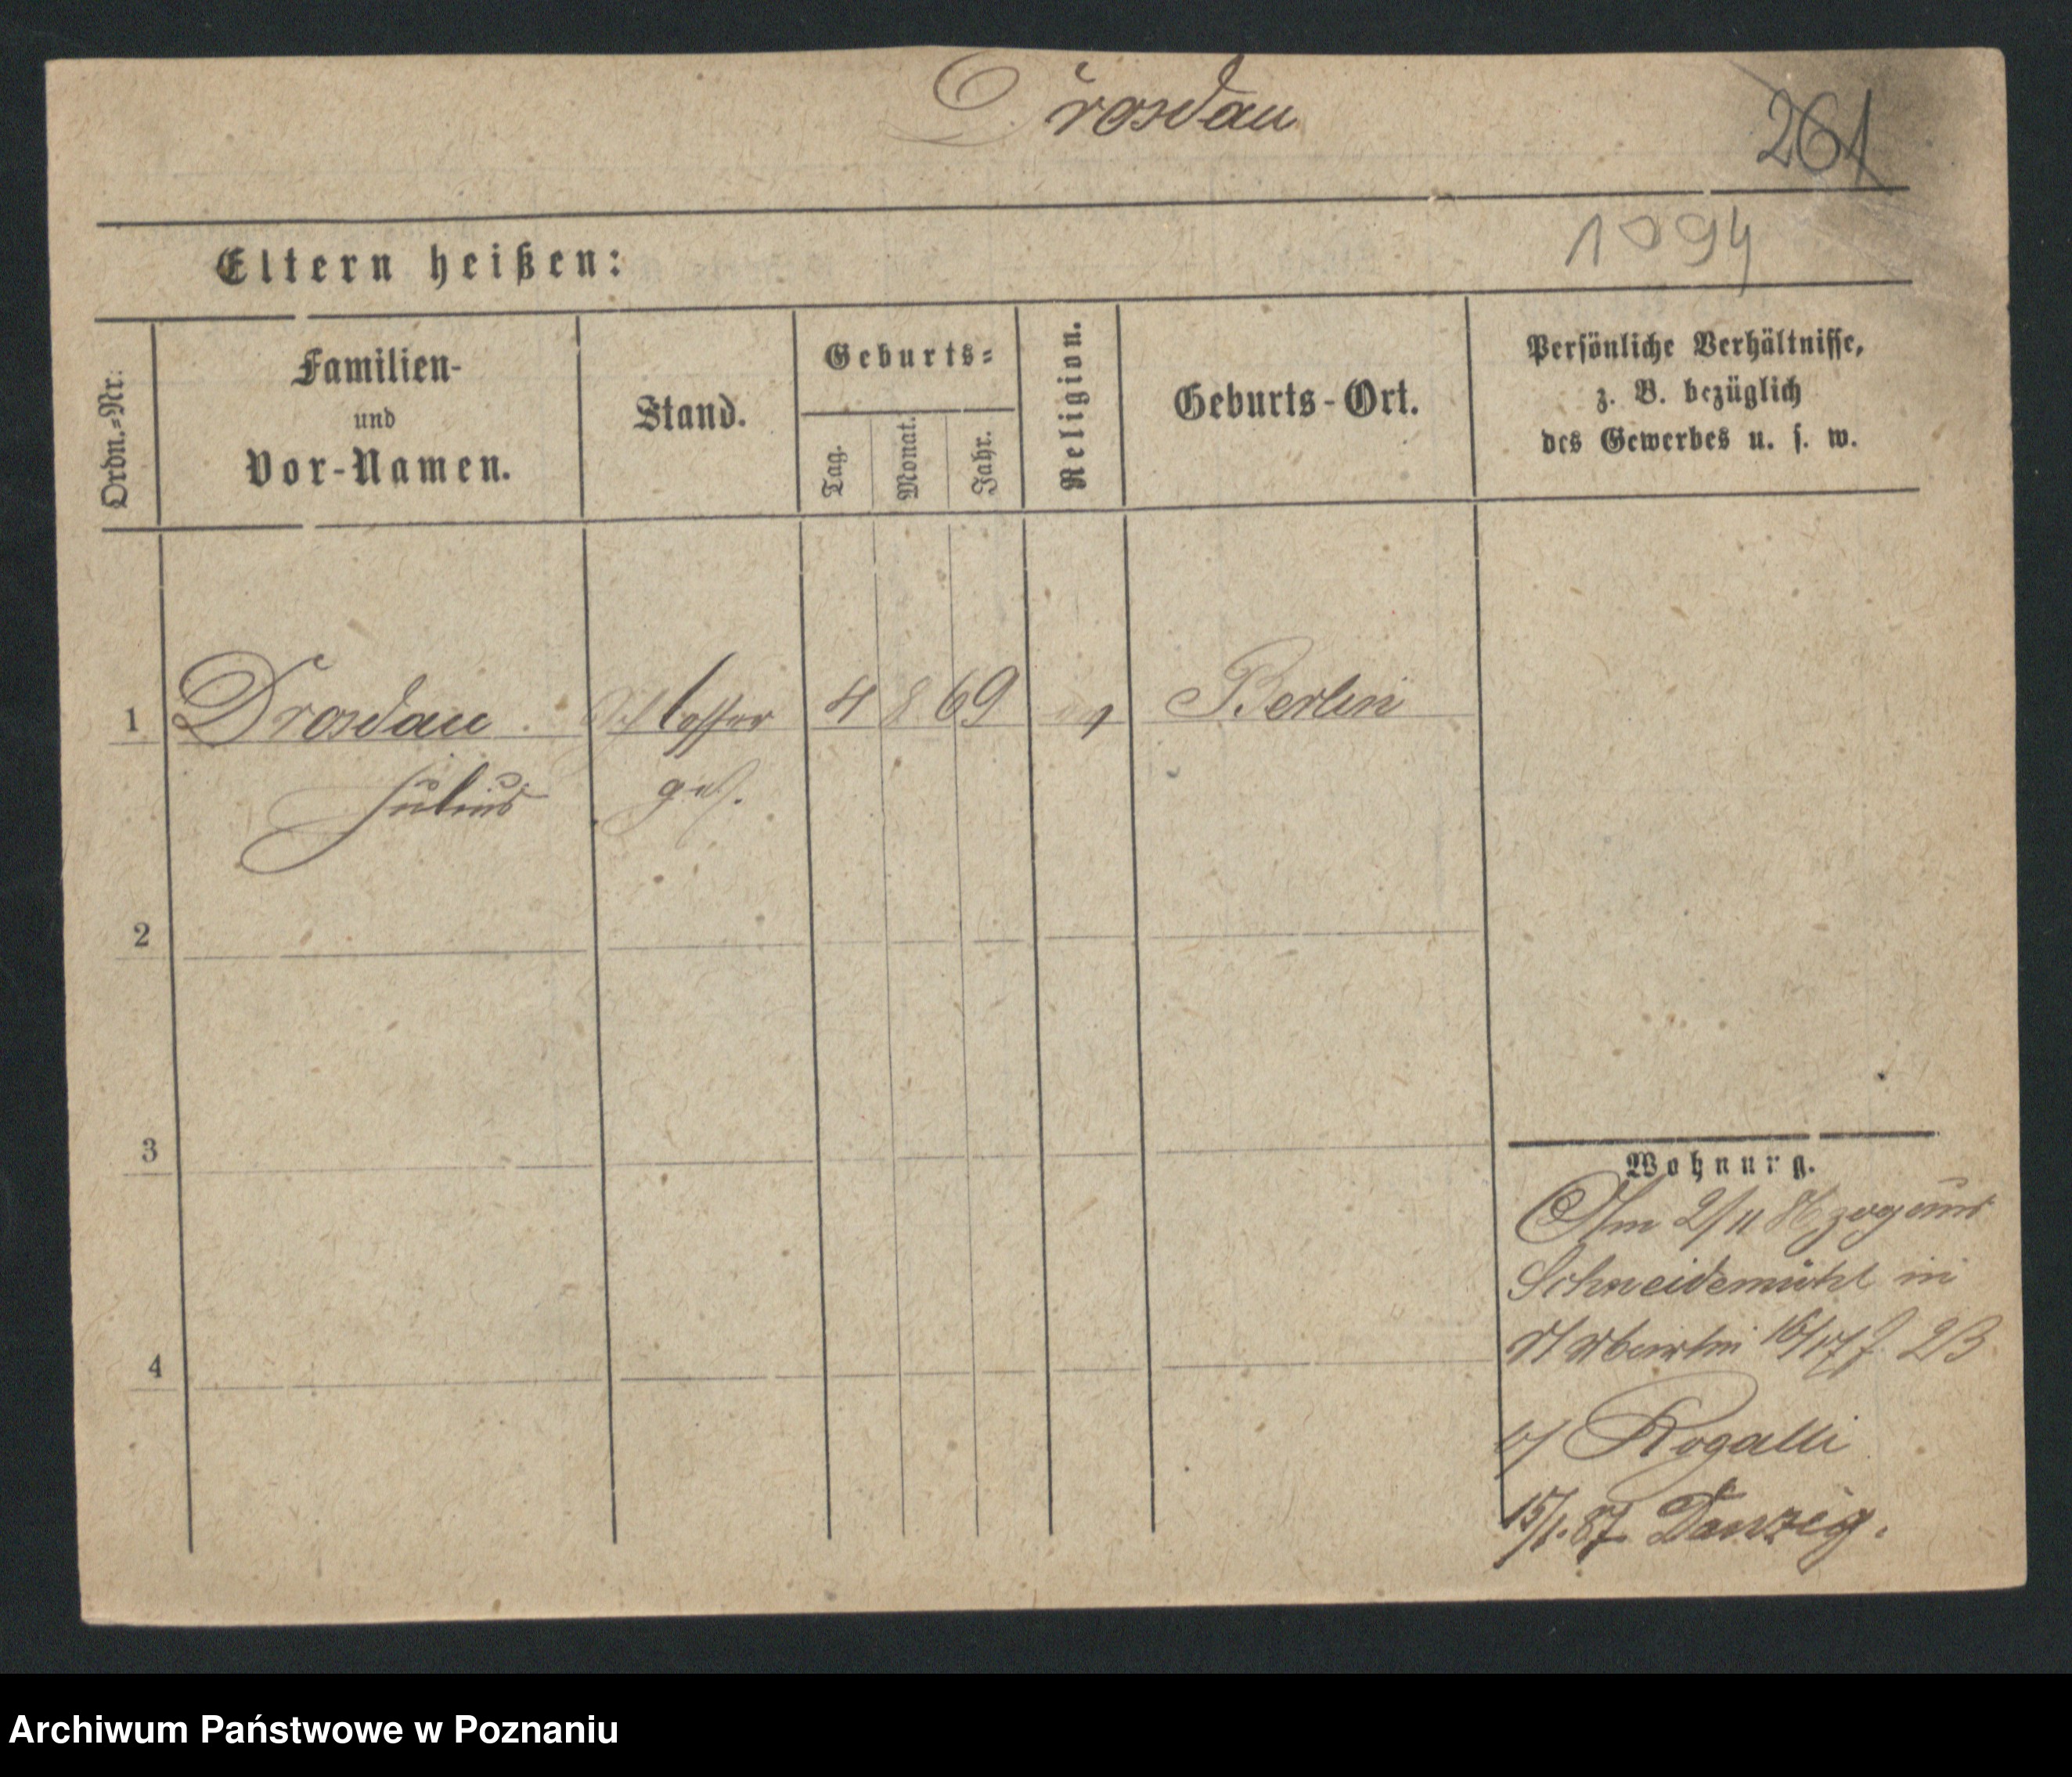 Drosdau
261
1094
Eltern heißen:
Ordn.-Nr.
Familien-
und
Vor-Namen.
Stand.
Geburts-
Tag.
Monat.
Jahr.
Religion.
Geburts-Ort.
Persönliche Verhältnisse,
z. B. bezüglich
des Gewerbes u. s. w.
1 Drosdau Schlosser 4 8 69 Berlin
Julius ges.
2
3
4
Wohnung.
Am 2/11 86 zog aus
Schneidemühl in
St Martin 16/17 23
b/ Rogalli
15/1.87. Danzig.
Archiwum Państwowe w Poznaniu